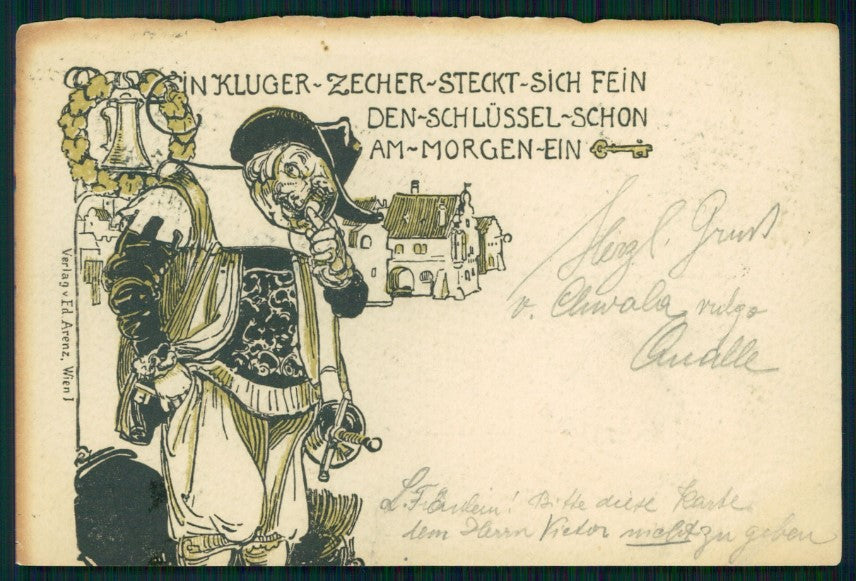 EIN KLUGER~ZECHER~STECKT~SICH FEIN
DEN~SCHLÜSSEL~SCHON
AM~MORGEN~EIN
Verlag v. Ed. Arenz, Wien I
Herzl. Gruß
v. Chwala, vulgo
Qualle
Bitte diese Karte
dem Herrn Victor nicht zu geben